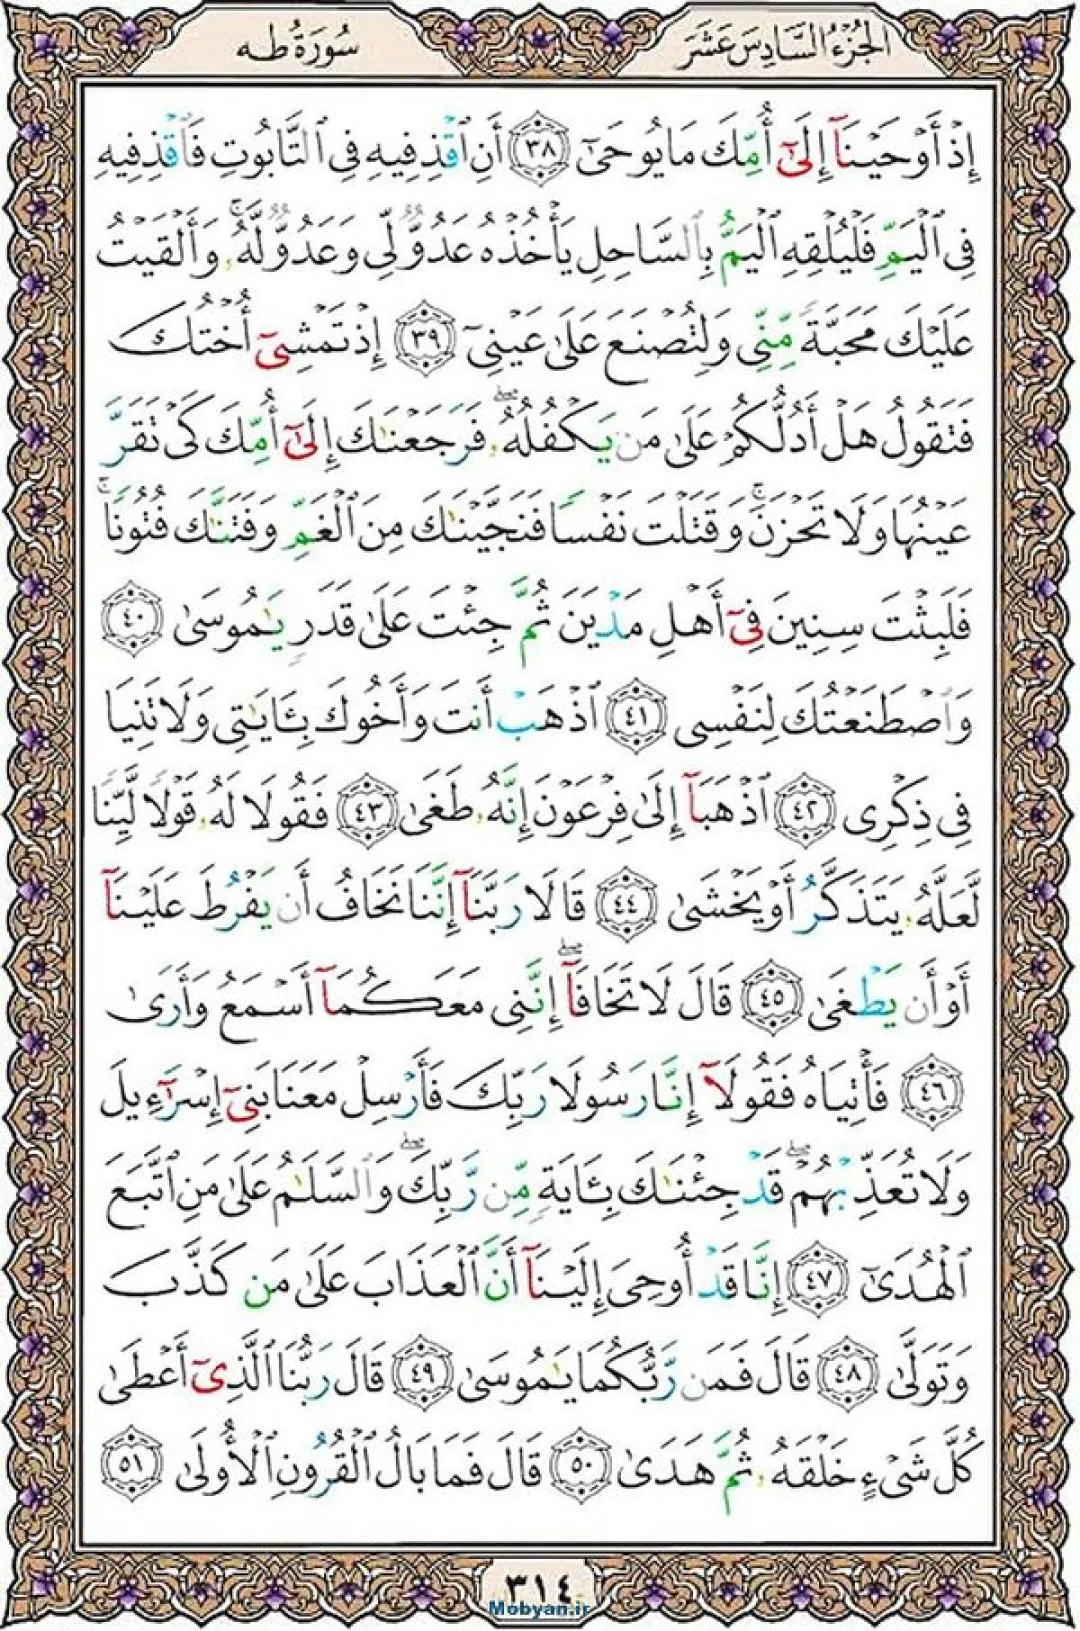 الجُزْءُ السَّادِسَ عَشَرَ
سُورَةُ طه
إِذْ أَوْحَيْنَآ إِلَىٰٓ أُمِّكَ مَا يُوحَىٰٓ ٣٨ أَنِ ٱقْذِفِيهِ فِى ٱلتَّابُوتِ فَٱقْذِفِيهِ
فِى ٱلْيَمِّ فَلْيُلْقِهِ ٱلْيَمُّ بِٱلسَّاحِلِ يَأْخُذْهُ عَدُوٌّ لِّى وَعَدُوٌّ لَّهُۥ ۚ وَأَلْقَيْتُ
عَلَيْكَ مَحَبَّةً مِّنِّى وَلِتُصْنَعَ عَلَىٰ عَيْنِىٓ ٣٩ إِذْ تَمْشِىٓ أُخْتُكَ
فَتَقُولُ هَلْ أَدُلُّكُمْ عَلَىٰ مَن يَكْفُلُهُۥ ۖ فَرَجَعْنَٰكَ إِلَىٰٓ أُمِّكَ كَىْ تَقَرَّ
عَيْنُهَا وَلَا تَحْزَنَ ۚ وَقَتَلْتَ نَفْسًا فَنَجَّيْنَٰكَ مِنَ ٱلْغَمِّ وَفَتَنَّٰكَ فُتُونًا ۚ
فَلَبِثْتَ سِنِينَ فِىٓ أَهْلِ مَدْيَنَ ثُمَّ جِئْتَ عَلَىٰ قَدَرٍ يَٰمُوسَىٰ ٤٠
وَٱصْطَنَعْتُكَ لِنَفْسِى ٤١ ٱذْهَبْ أَنتَ وَأَخُوكَ بِـَٔايَٰتِى وَلَا تَنِيَا
فِى ذِكْرِى ٤٢ ٱذْهَبَآ إِلَىٰ فِرْعَوْنَ إِنَّهُۥ طَغَىٰ ٤٣ فَقُولَا لَهُۥ قَوْلًا لَّيِّنًا
لَّعَلَّهُۥ يَتَذَكَّرُ أَوْ يَخْشَىٰ ٤٤ قَالَا رَبَّنَآ إِنَّنَا نَخَافُ أَن يَفْرُطَ عَلَيْنَآ
أَوْ أَن يَطْغَىٰ ٤٥ قَالَ لَا تَخَافَآ ۖ إِنَّنِى مَعَكُمَآ أَسْمَعُ وَأَرَىٰ
٤٦ فَأْتِيَاهُ فَقُولَآ إِنَّا رَسُولَا رَبِّكَ فَأَرْسِلْ مَعَنَا بَنِىٓ إِسْرَٰٓءِيلَ
وَلَا تُعَذِّبْهُمْ ۖ قَدْ جِئْنَٰكَ بِـَٔايَةٍ مِّن رَّبِّكَ ۖ وَٱلسَّلَٰمُ عَلَىٰ مَنِ ٱتَّبَعَ
ٱلْهُدَىٰٓ ٤٧ إِنَّا قَدْ أُوحِىَ إِلَيْنَآ أَنَّ ٱلْعَذَابَ عَلَىٰ مَن كَذَّبَ
وَتَوَلَّىٰ ٤٨ قَالَ فَمَن رَّبُّكُمَا يَٰمُوسَىٰ ٤٩ قَالَ رَبُّنَا ٱلَّذِىٓ أَعْطَىٰ
كُلَّ شَىْءٍ خَلْقَهُۥ ثُمَّ هَدَىٰ ٥٠ قَالَ فَمَا بَالُ ٱلْقُرُونِ ٱلْأُولَىٰ ٥١
٣١٤
Mobyan.ir